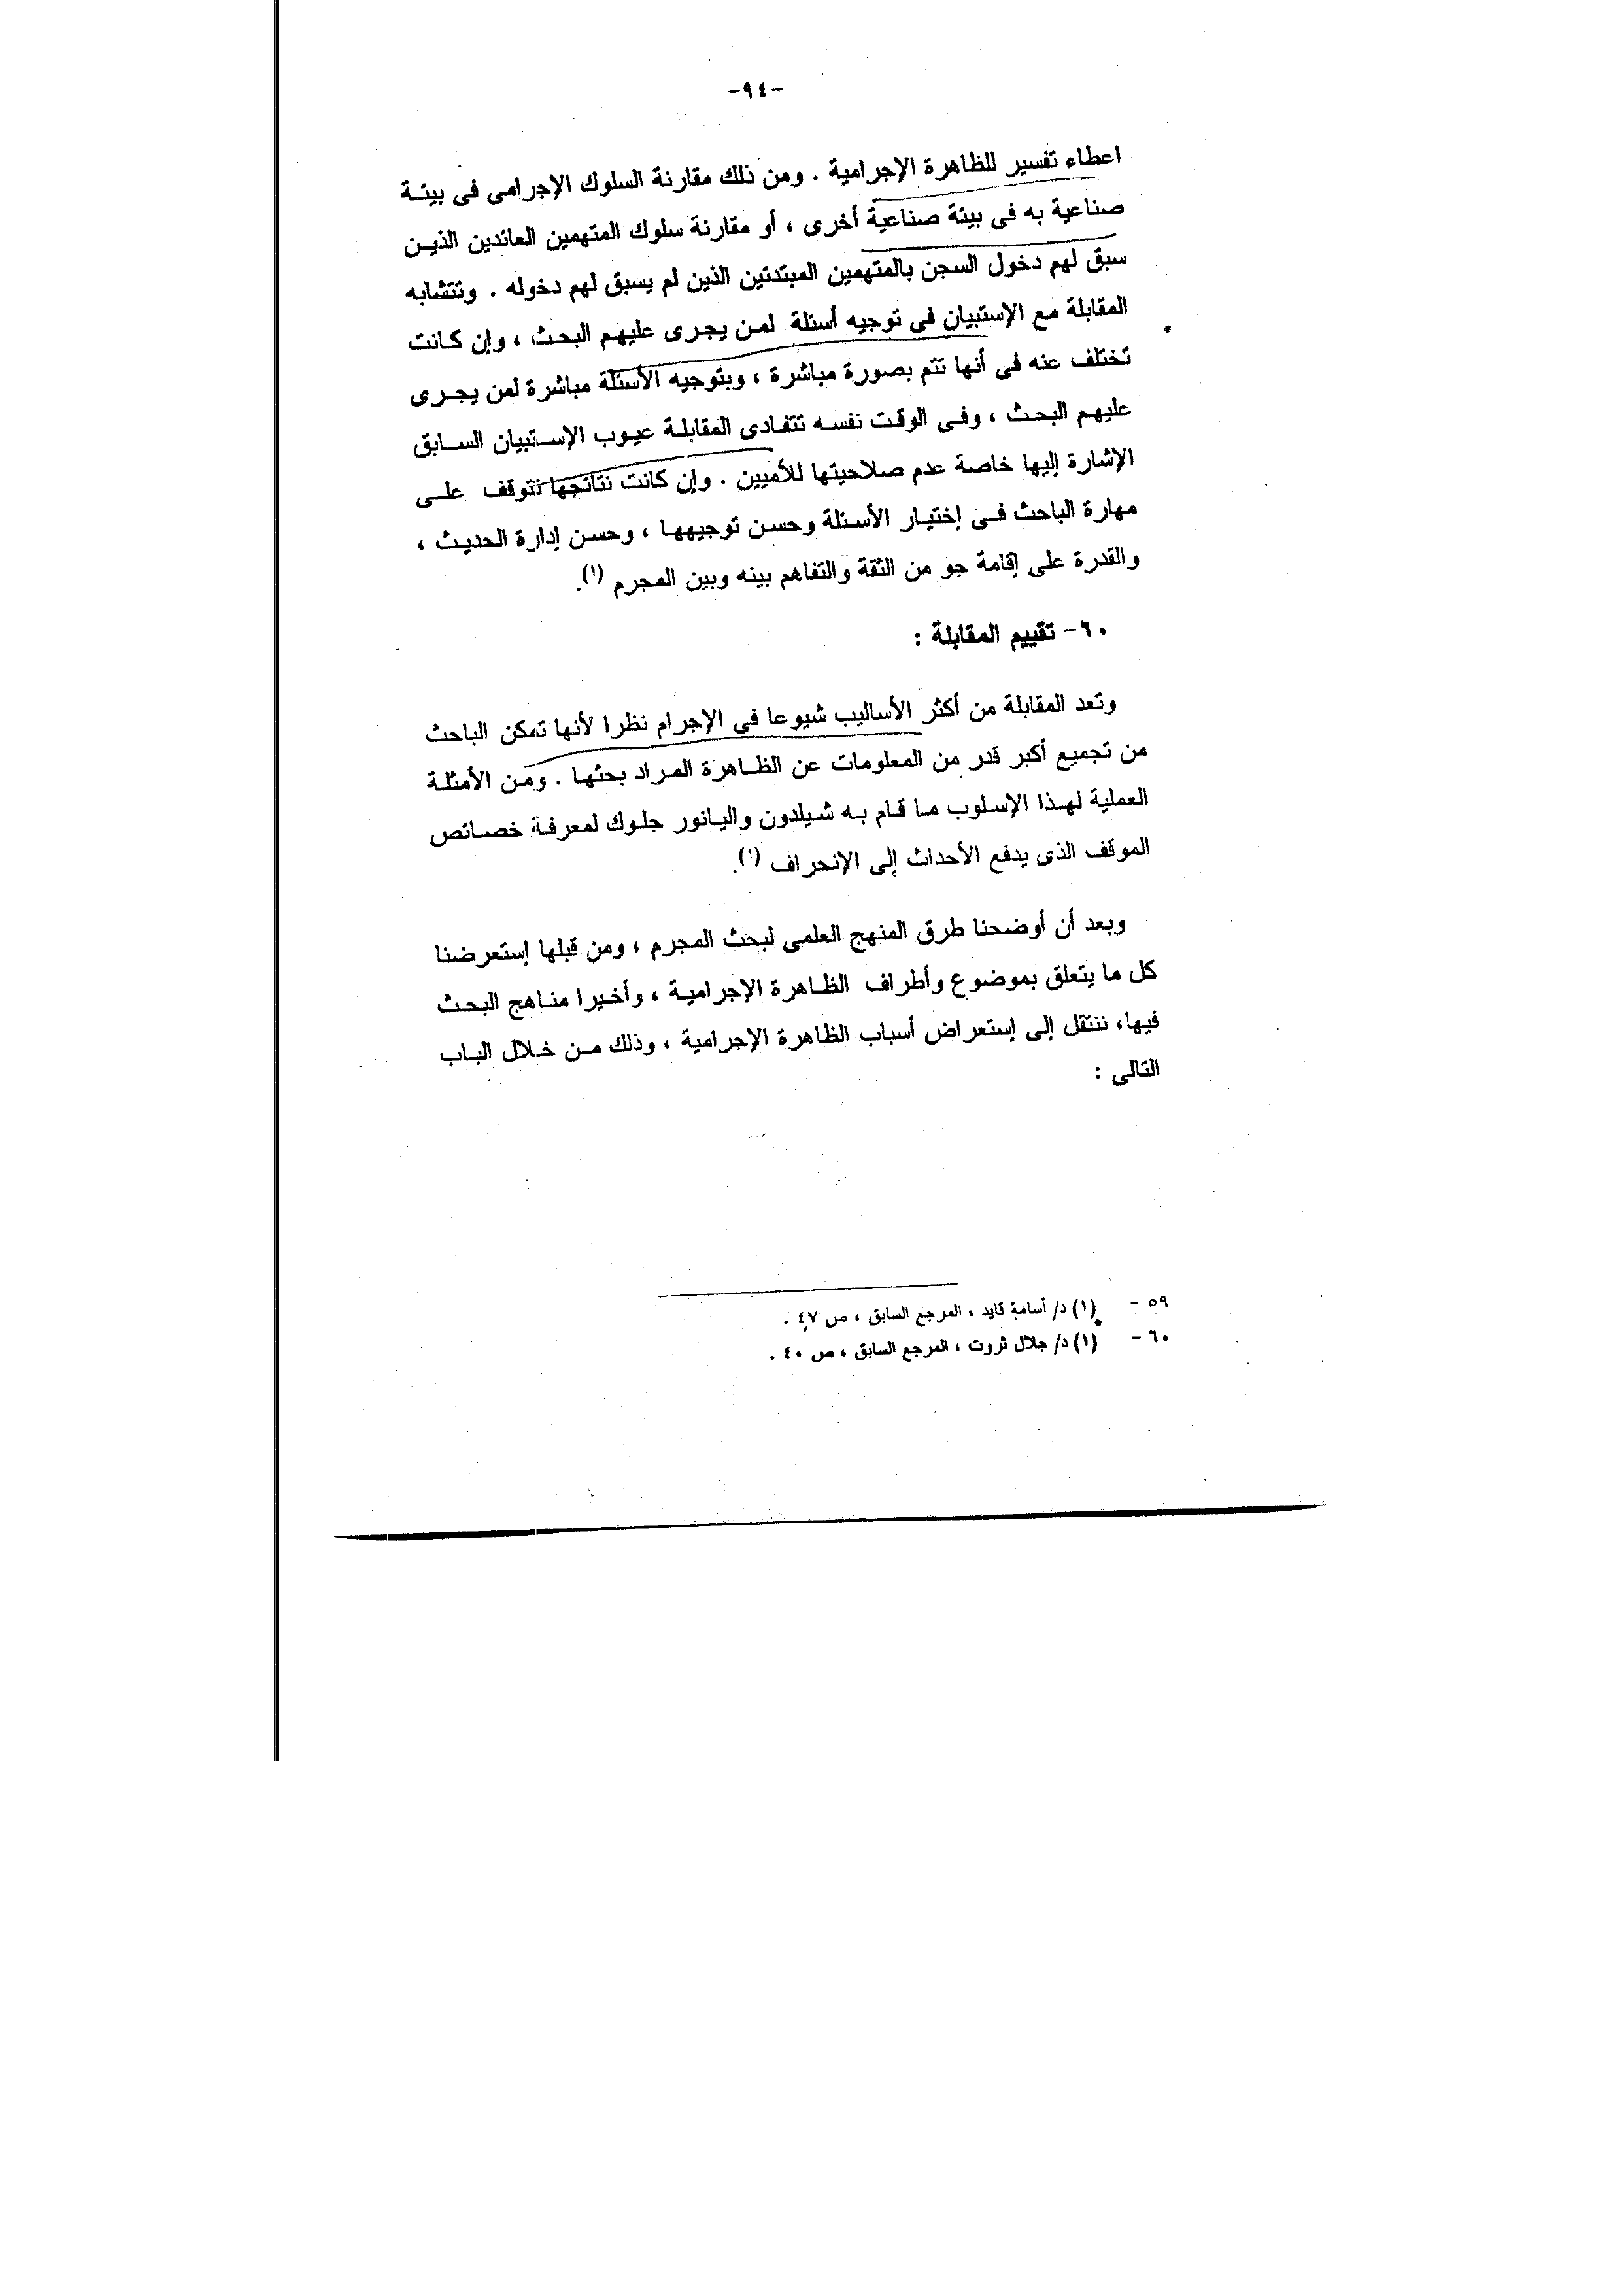 -٩٤-
اعطاء تفسير للظاهرة الإجرامية . ومن ذلك مقارنة السلوك الإجرامى فى بيئة
صناعية به فى بيئة صناعية أخرى ، أو مقارنة سلوك المتهمين العائدين الذين
سبق لهم دخول السجن بالمتهمين المبتدئين الذين لم يسبق لهم دخوله . وتتشابه
المقابلة مع الإستبيان فى توجيه أسئلة لمن يجرى عليهم البحث ، وإن كانت
تختلف عنه فى أنها تتم بصورة مباشرة ، وبتوجيه الأسئلة مباشرة لمن يجرى
عليهم البحث ، وفى الوقت نفسه تتفادى المقابلة عيوب الإستبيان السابق
الإشارة إليها خاصة عدم صلاحيتها للأميين . وإن كانت نتائجها تتوقف على
مهارة الباحث فى إختيار الأسئلة وحسن توجيهها ، وحسن إدارة الحديث ،
والقدرة على إقامة جو من الثقة والتفاهم بينه وبين المجرم (١).
٦٠- تقييم المقابلة :
وتعد المقابلة من أكثر الأساليب شيوعا فى الإجرام نظرا لأنها تمكن الباحث
من تجميع أكبر قدر من المعلومات عن الظاهرة المراد بحثها . ومن الأمثلة
العملية لهذا الإسلوب ما قام به شيلدون واليانور جلوك لمعرفة خصائص
الموقف الذى يدفع الأحداث إلى الإنحراف (١).
وبعد أن أوضحنا طرق المنهج العلمى لبحث المجرم ، ومن قبلها إستعرضنا
كل ما يتعلق بموضوع وأطراف الظاهرة الإجرامية ، وأخيرا مناهج البحث
فيها، ننتقل إلى إستعراض أسباب الظاهرة الإجرامية ، وذلك من خلال الباب
التالى :
٥٩ - (١) د/ أسامة قايد ، المرجع السابق ، ص ٤٧ .
٦٠ - (١) د/ جلال ثروت ، المرجع السابق ، ص ٤٠ .